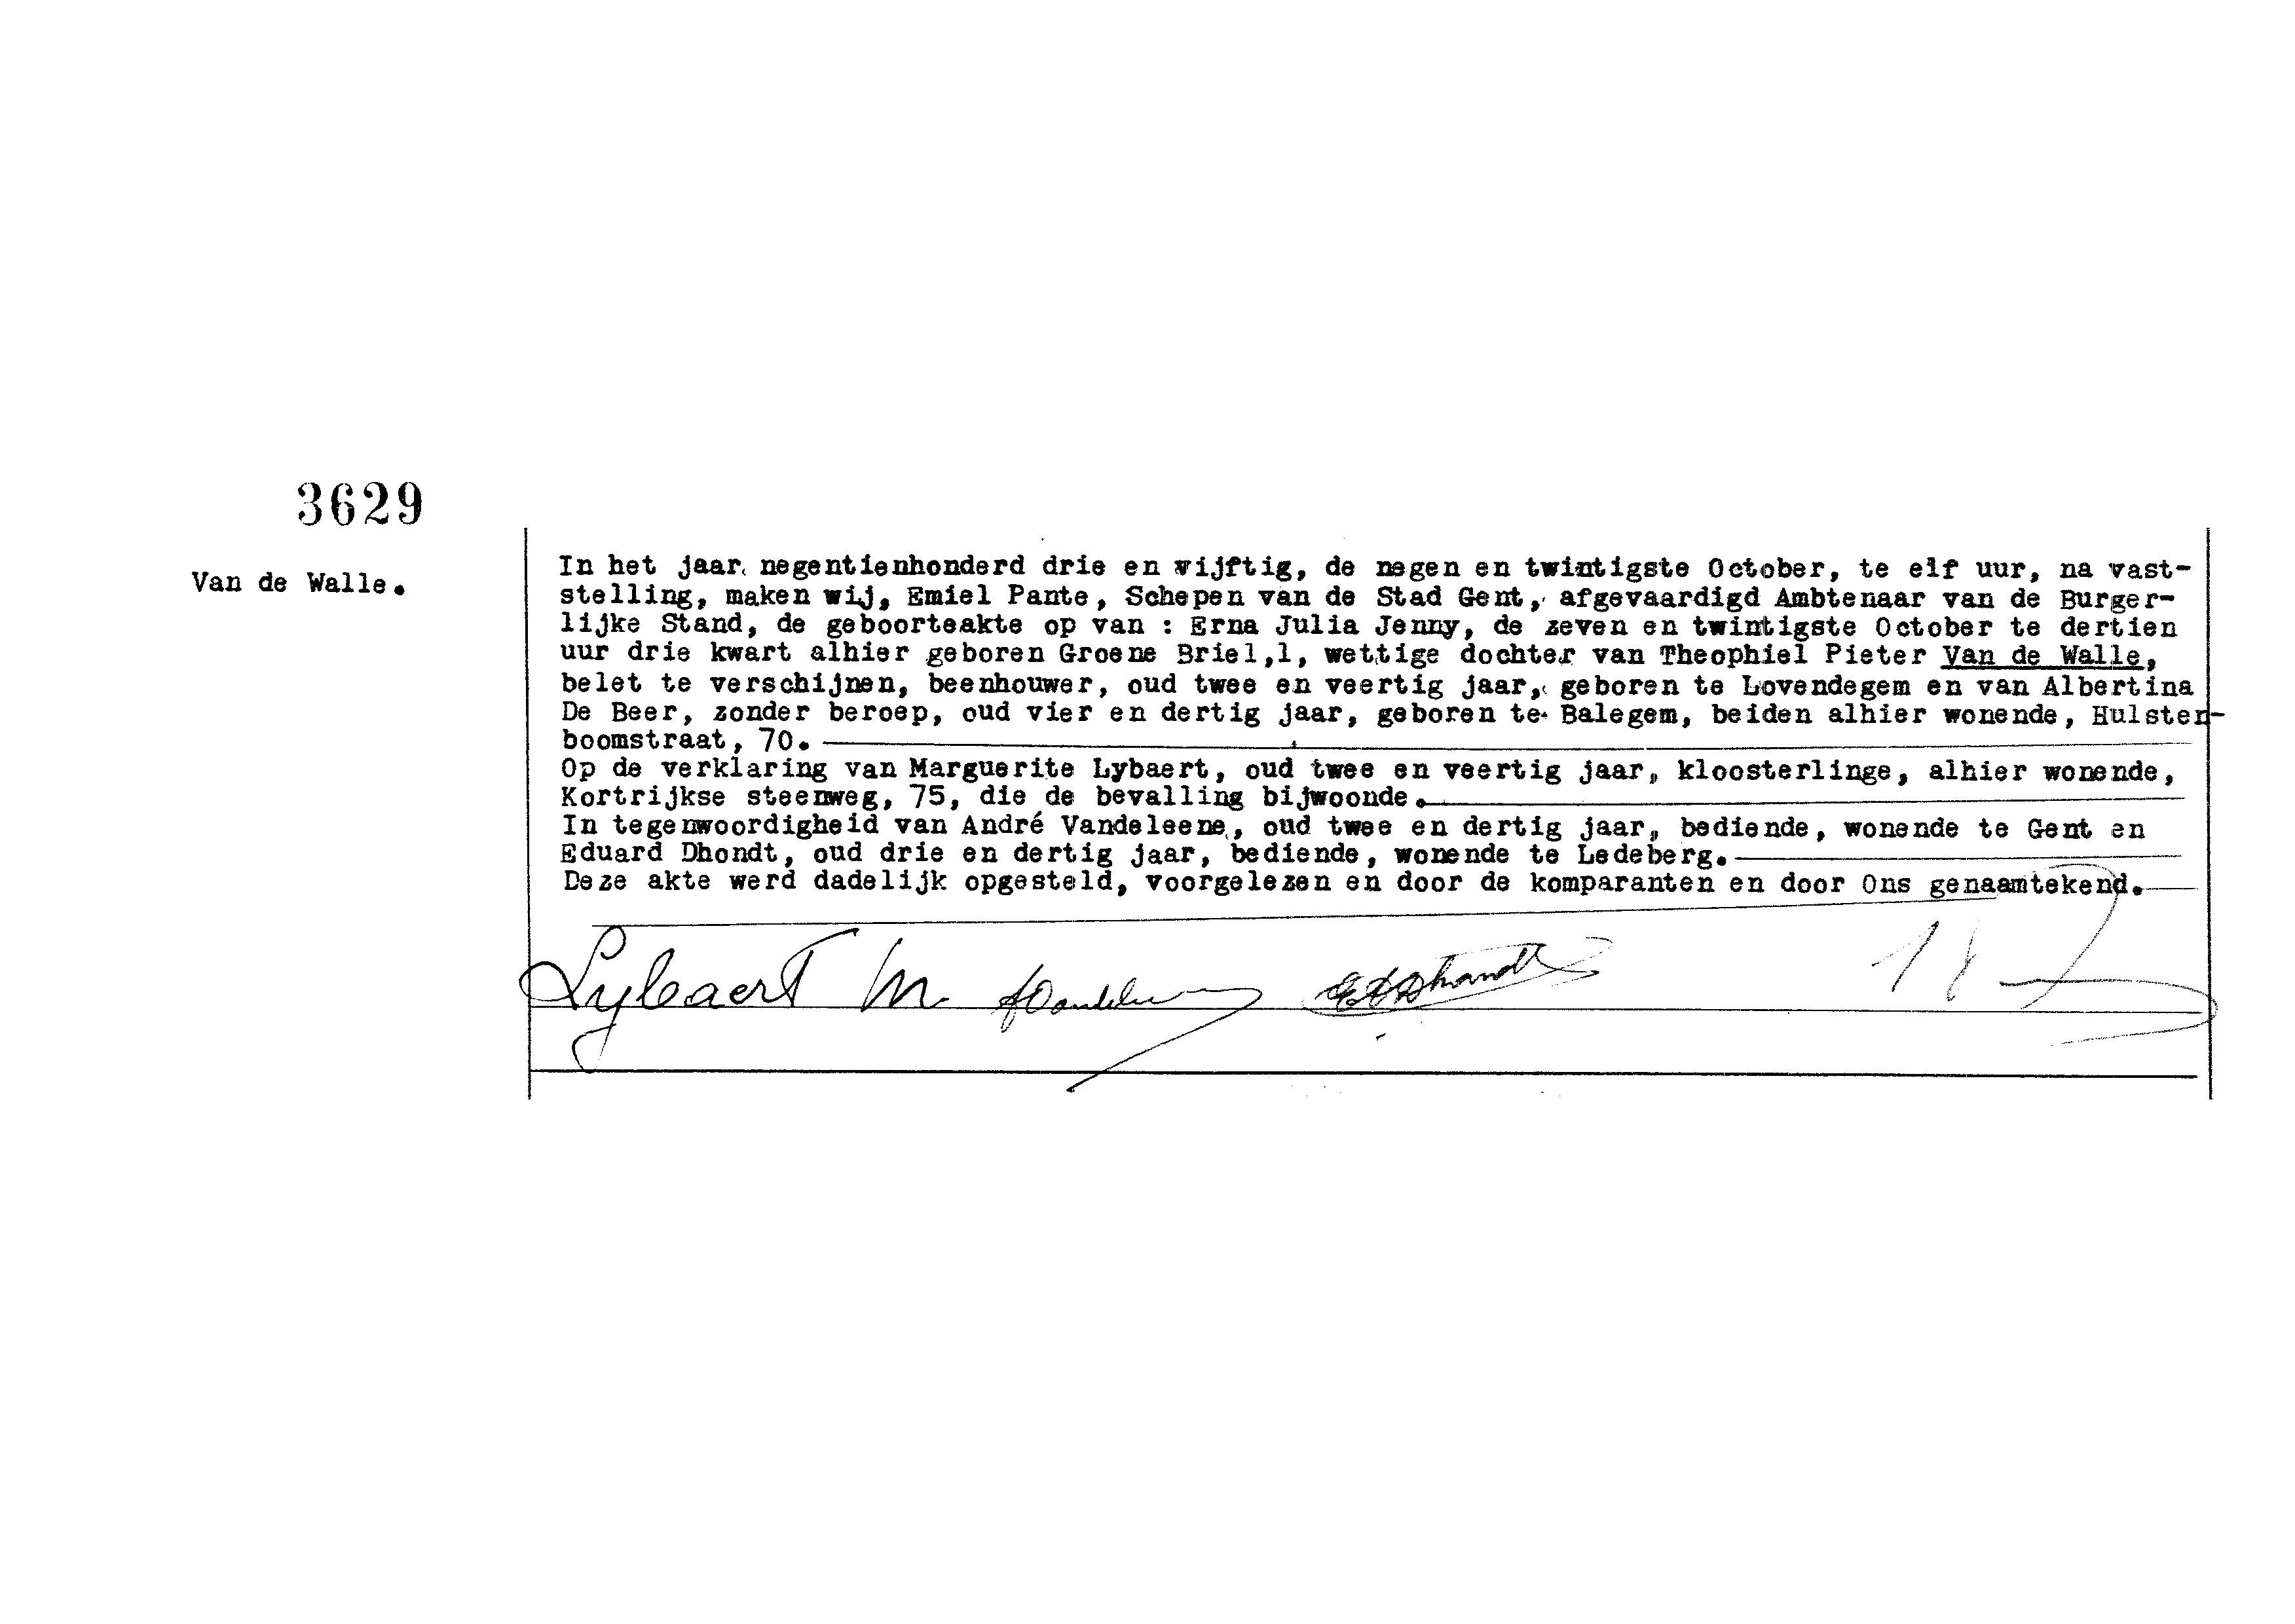 3629
Van de Walle.
In het jaar negentienhonderd drie en vijftig, de negen en twintigste October, te elf uur, na vast-
stelling, maken wij, Emiel Pante, Schepen van de Stad Gent, afgevaardigd Ambtenaar van de Burger-
lijke Stand, de geboorteakte op van : Erna Julia Jenny, de zeven en twintigste October te dertien
uur drie kwart alhier geboren Groene Briel,1, wettige dochter van Theophiel Pieter Van de Walle,
belet te verschijnen, beenhouwer, oud twee en veertig jaar, geboren te Lovendegem en van Albertina
De Beer, zonder beroep, oud vier en dertig jaar, geboren te Balegem, beiden alhier wonende, Hulsten-
boomstraat, 70.
Op de verklaring van Marguerite Lybaert, oud twee en veertig jaar, kloosterlinge, alhier wonende,
Kortrijkse steenweg, 75, die de bevalling bijwoonde.
In tegenwoordigheid van André Vandeleene, oud twee en dertig jaar, bediende, wonende te Gent en
Eduard Dhondt, oud drie en dertig jaar, bediende, wonende te Ledeberg.
Deze akte werd dadelijk opgesteld, voorgelezen en door de komparanten en door Ons genaamtekend.
Lybaert M.